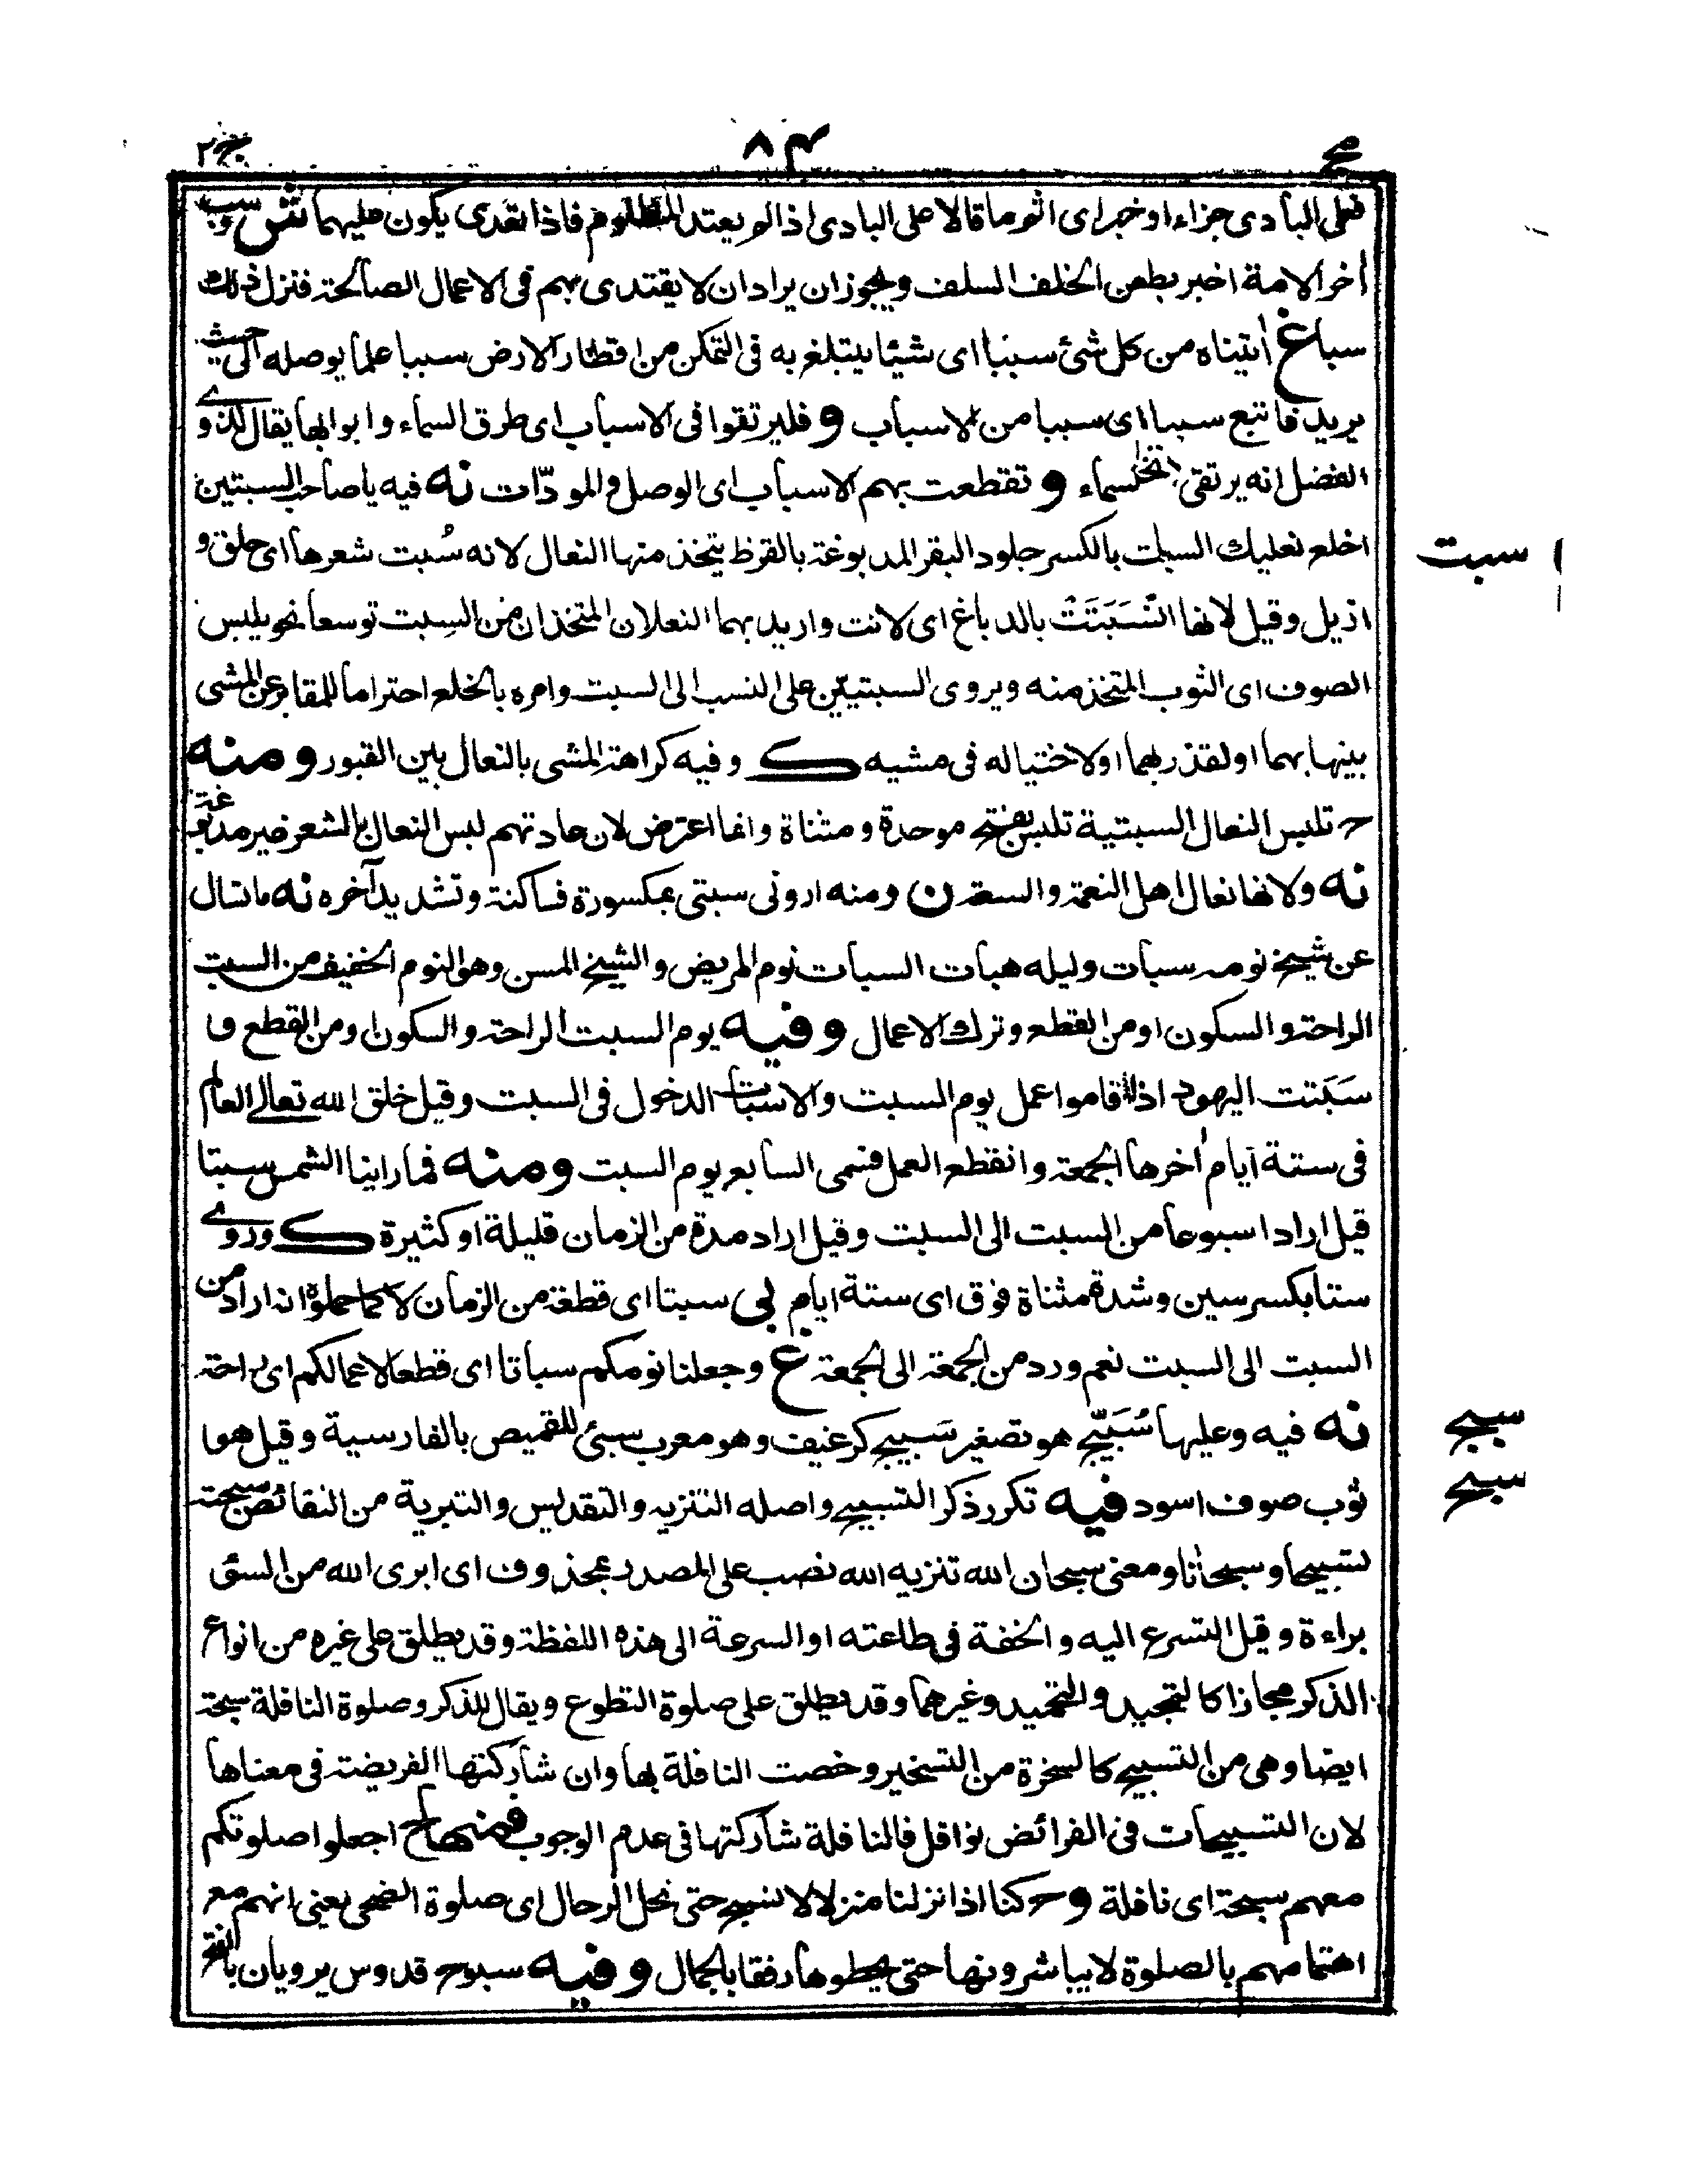 سج ٨٣ ج٢
فعلى البادى جزاء او خبر اى اثم ما قالا على البادى اذا لم يعتد المظلوم فاذا تعدى يكون عليهما نش وسب
آخر الامة اخبر بطعن الخلف السلف ويجوز ان يراد ان لا يقتدى بهم فى الاعمال الصالحة فنزل ذلك
سبا غ أتيناه من كل شئ سببا اى شيئا يتبلغ به فى التمكن من اقطار الارض سببا علما يوصله الى حيث
يريد فاتبع سببا اى سببا من الاسباب و فليرتقوا فى الاسباب اى طرق السماء وابوابها يقال لذوى
الفضل انه يرتقى السماء و تقطعت بهم الاسباب اى الوصل والمودّات نه فيه يا صاحب السبتين
اخلع نعليك السبت بالكسر جلود البقر المدبوغة بالقرظ يتخذ منها النعال لانه سُبت شعرها اى حلق و
ازيل وقيل لانها انْسَبَتَتْ بالدباغ اى لانت واريد بهما النعلان المتخذان من السِبت توسعا نحو يلبس
الصوف اى الثوب المتخذ منه ويروى السبتيتين على النسب الى السبت وامره بالخلع احتراما للمقابر عن المشى
بينها بهما او لقذر بهما او لاختياله فى مشيه ك وفيه كراهة المشى بالنعال بين القبور ومنه
ح تلبس النعال السبتية تلبس بفتح موحدة ومثناة وانما اعترض لان عادتهم لبس النعال بالشعر غير مدبوغة
نه ولانها نعال اهل النعمة والسعة ن ومنه ارونى سبتى بمكسورة فساكنة وتشديد آخره نه ما تسال
عن شيخ نومه سبات وليله هبات السبات نوم المريض والشيخ المسن وهو النوم الخفيف من السبت
الراحة والسكون او من القطع وترك الاعمال وفيه يوم السبت الراحة والسكون او من القطع وا
سَبَتت اليهود اذا قاموا عمل يوم السبت والاسبات الدخول فى السبت وقيل خلق الله تعالى العالم
فى ستة ايام أخرها الجمعة وانقطع العمل فسمى السابع يوم السبت ومنه فما راينا الشمس سبتا
قيل اراد اسبوعا من السبت الى السبت وقيل اراد مدة من الزمان قليلة او كثيرة ك وروى
ستا بكسر سين وشدة مثناة فوق اى ستة ايام لى سبتا اى قطعة من الزمان لا كما حملوه انه اراد من
السبت الى السبت نعم ورد من الجمعة الى الجمعة غ وجعلنا نومكم سباتا اى قطعا لاعمالكم اى راحة
نه فيه وعليها سُبَيّج هو تصغير سَبيج كرغيف وهو معرب سبئ للقميص بالفارسية وقيل هوا
ثوب صوف اسود فيه تكرر ذكر التسبيح واصله التنزيه والتقديس والتبرية من النقائص سبحته
تسبيحا وسبحانا ومعنى سبحان الله تنزيه الله نصب على المصدر بمحذوف اى ابرى الله من السئ
براءة وقيل التسرع اليه والخفة فى طاعته او السرعة الى هذه اللفظة وقد يطلق على غيره من انواع
الذكر مجازا كالتمجيد والتحميد وغيرهما وقد يطلق على صلوة التطوع ويقال للذكر وصلوة النافلة سبحة
ايضا وهى من التسبيح كالسخرة من التسخير وخصت النافلة بها وان شاركتها الفريضة فى معناها
لان التسبيحات فى الفرائض نوافل فالنافلة شاركتها فى عدم الوجوب فمنها ح اجعلوا صلوتكم
معهم سبحة اى نافلة وح كنا اذا نزلنا منزلا لا نسبح حتى نحل الرحال اى صلوة الضحى يعنى انهم مع
اهتمامهم بالصلوة لا يباشرونها حتى يحطوها رفقا بالجمال وفيه سبوح قدوس يرويان بالفتح
سبت
سبج
سبح